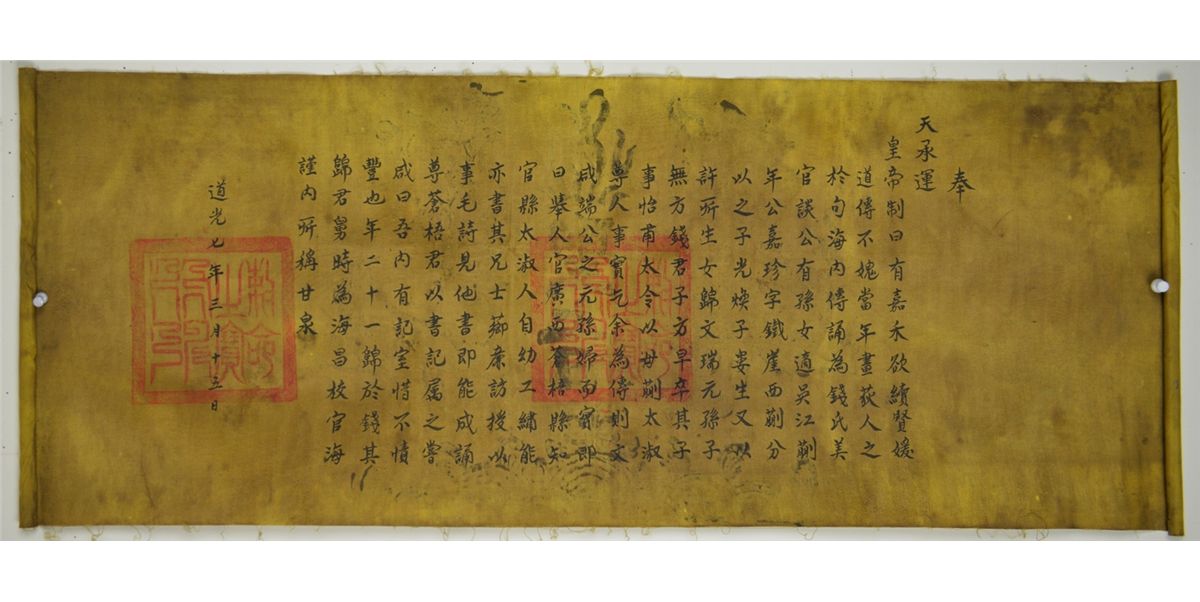 奉
天承運
皇帝制曰有嘉禾欲續賢媛
道傳不媿當年畫荻人之
於句海內傳誦為錢氏美
官談公有孫女適吳江蒯
年公嘉珍字鐵崖西蒯分
以之子光煥子婁生又以
許所生女歸文瑞元孫子
無方錢君子方早卒其子
事怡甫太令以毋蒯太淑
尊人事實乞余為傳則文
咸端公之元孫婦而實即
曰舉人官廣西蒼梧縣知
官縣太淑人自幼工繡能
亦書其兄士薌廉訪授以
事毛詩見他書即能成誦
尊蒼梧君以書記屬之嘗
咸曰吾內有記室惜不憤
豐也年二十一歸於錢其
歸君舅時為海昌校官海
謹內所稱甘泉
道光七年三月十五日